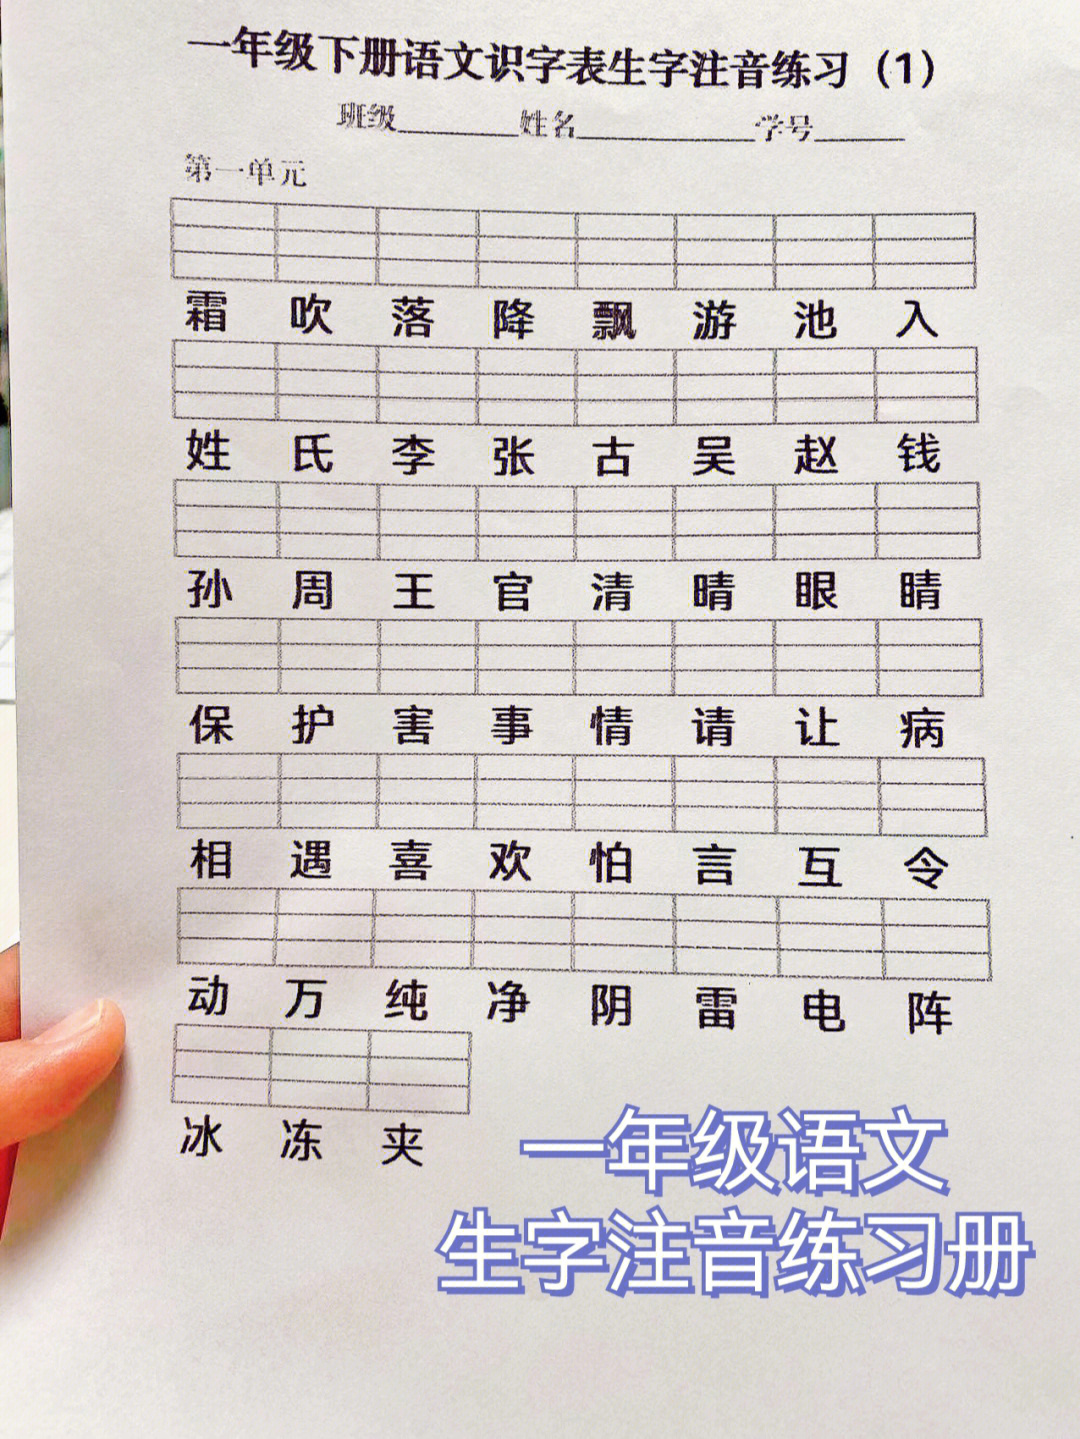 一年级下册语文识字表生字注音练习（1）
班级______姓名_________学号_____
第一单元
霜 吹 落 降 飘 游 池 入
姓 氏 李 张 古 吴 赵 钱
孙 周 王 官 清 晴 眼 睛
保 护 害 事 情 请 让 病
相 遇 喜 欢 怕 言 互 令
动 万 纯 净 阴 雷 电 阵
冰 冻 夹
一年级语文
生字注音练习册